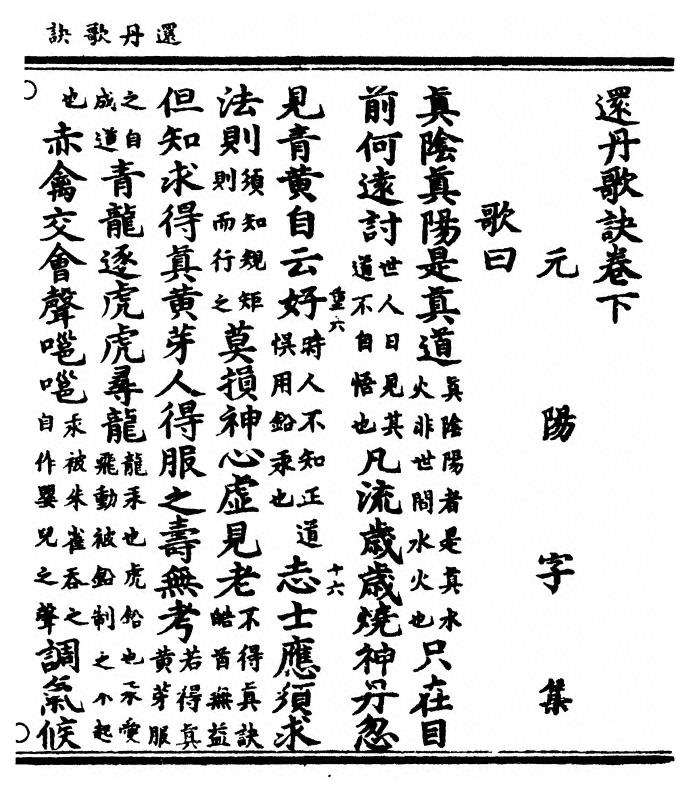 還丹歌訣
還丹歌訣卷下
元陽字集
歌曰
眞陰眞陽是眞道眞陰陽者是眞水火非世間水火也只在目
前何遠討世人日見其道不自悟也凡流歲歲燒神丹忽
見青黃自云好時人不知正道悞用鉛汞也志士應須求
重六
十六
法則須知規矩則而行之莫損神心虛見老不得眞訣皓首無益
但知求得眞黃芽人得服之壽無考若得眞黃芽服
之自成道青龍逐虎虎尋龍龍汞也虎鉛也汞愛飛動被鉛制之不起
也赤禽交會聲嗈嗈汞被朱雀吞之自作嬰兒之聲調氣候